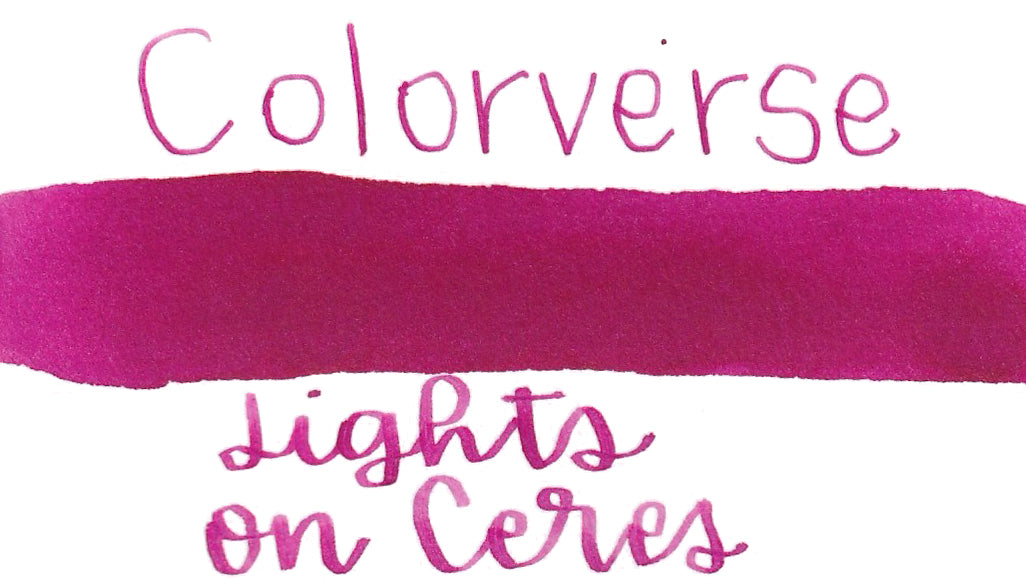 Colorverse
Lights
on Ceres